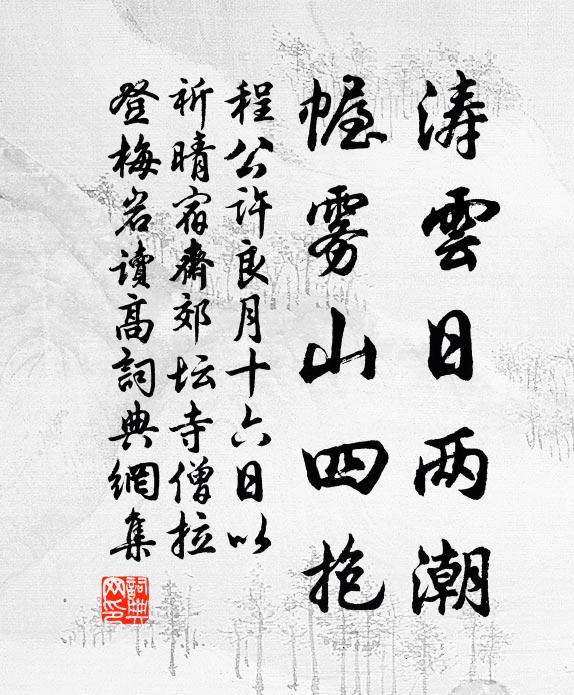 涛雲日两潮
幄雾山四抱
程公许良月十六日以
祈晴宿斋郊坛寺僧拉
登梅岩读高詞典網集
詞典网印